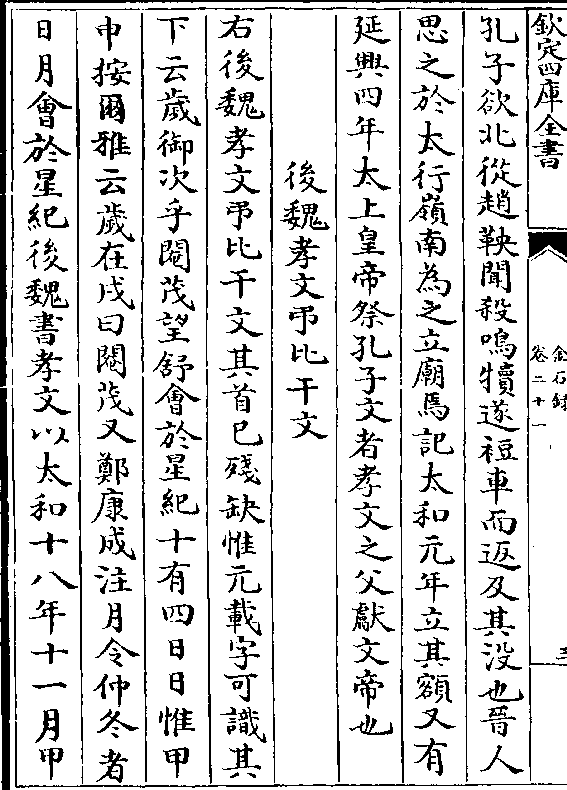 欽定四庫全書
金石録
卷二十一
孔子欲北從趙鞅聞殺鳴犢遂𥘉車而返及其沒也晉人
思之於太行嶺南為之立廟焉記太和元年立其額又有
延興四年太上皇帝祭孔子文者孝文之父獻文帝也
後魏孝文弔比干文
右後魏孝文弔比干文其首已殘缺惟元載字可識其
下云歲御次乎閹茂望舒會於星紀十有四日日惟甲
申按爾雅云歲在戌曰閹茂又鄭康成注月令仲冬者
日月會於星紀後魏書孝文以太和十八年十一月甲